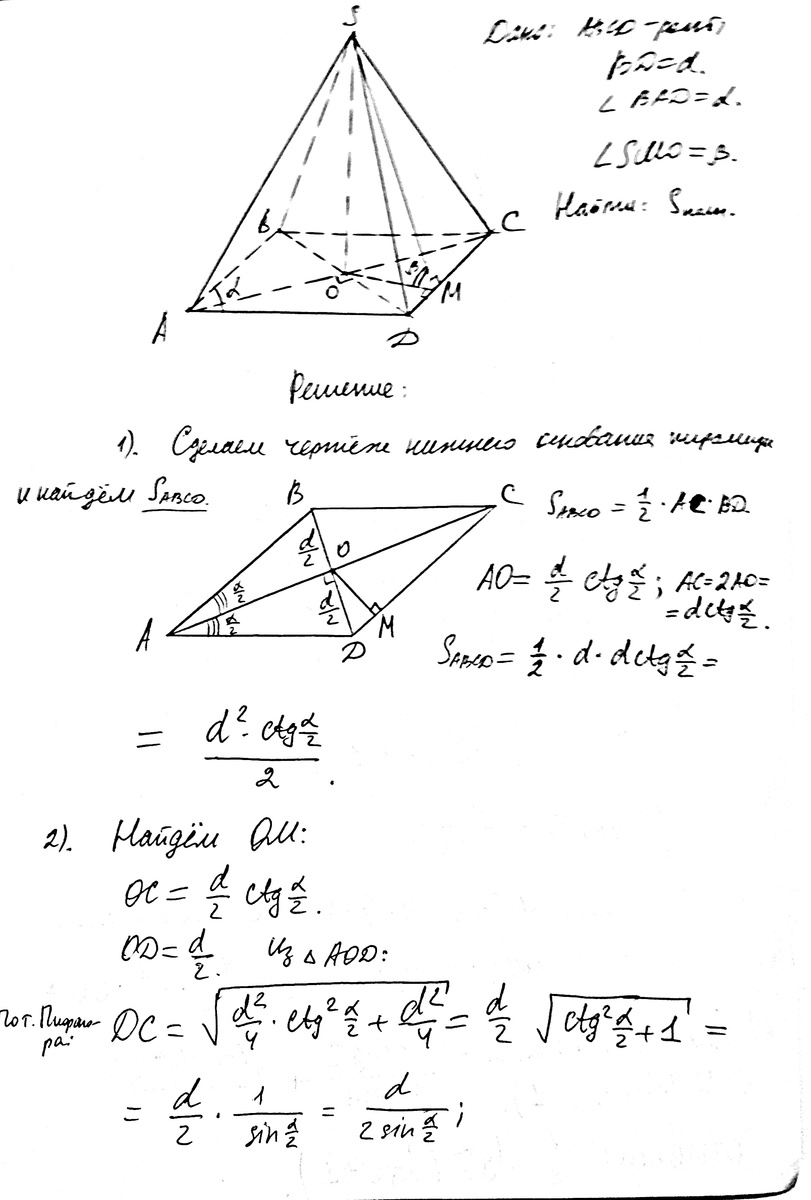 S
Дано: ABCD - ромб,
BD = d.
∠ BAD = α.
∠SMO = β.
Найти: Sполн.
B
C
β
α
O
M
A
D
Решение:
1). Сделаем чертёж нижнего основания пирамиды
и найдём SABCD.
B
C
SABCD = 1/2 · AC · BD.
d/2
O
AO = d/2 ctg α/2 ; AC = 2AO =
= d ctg α/2.
α/2
α/2
d/2
A
D
M
SABCD = 1/2 · d · d ctg α/2 =
= d² · ctg α/2 / 2 .
2). Найдём OM:
OC = d/2 ctg α/2.
OD = d/2. Из △ AOD:
По т. Пифаго-
ра:
DC = √(d²/4 · ctg² α/2 + d²/4) = d/2 √(ctg² α/2 + 1) =
= d/2 · 1/sin α/2 = d/2 sin α/2 ;